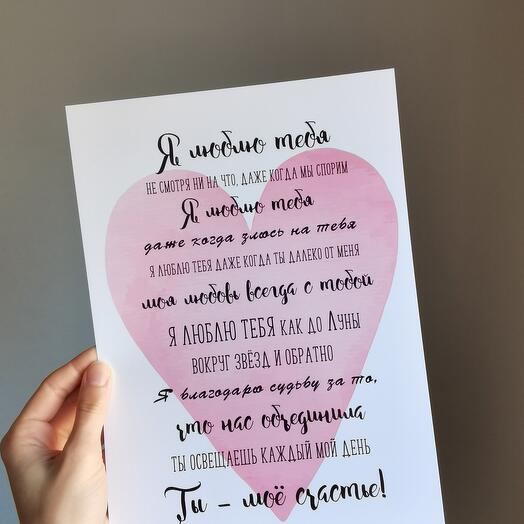 Я люблю тебя
НЕ СМОТРЯ НИ НА ЧТО, ДАЖЕ КОГДА МЫ СПОРИМ
Я люблю тебя
даже когда злюсь на тебя
Я ЛЮБЛЮ ТЕБЯ ДАЖЕ КОГДА ТЫ ДАЛЕКО ОТ МЕНЯ
моя любовь всегда с тобой
Я ЛЮБЛЮ ТЕБЯ КАК ДО ЛУНЫ
ВОКРУГ ЗВЁЗД И ОБРАТНО
Я благодарю судьбу за то,
что нас объединила
ТЫ ОСВЕЩАЕШЬ КАЖДЫЙ МОЙ ДЕНЬ
Ты – моё счастье!